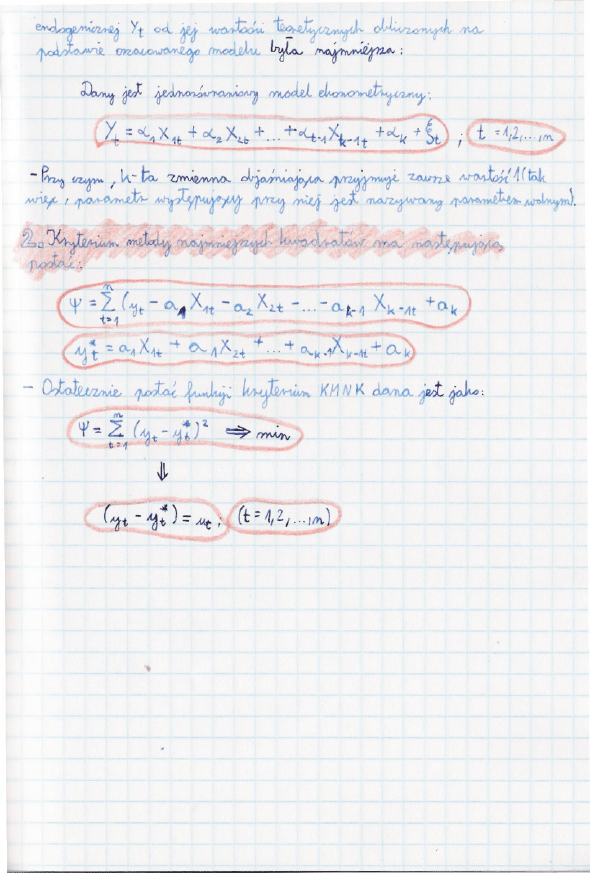 endogenicznej Yₜ od jej wartości teoretycznych obliczonych na
podstawie oszacowanego modelu była najmniejsza:
Dany jest jednorównaniowy model ekonometryczny:
Yₜ = α₁X₁ₜ + α₂X₂ₜ + ... + αₜ₋₁Xₖ₋₁ₜ + αₖ + ξₜ ; t = 1,2,...,n
- Przy czym, k-ta zmienna objaśniająca przyjmuje zawsze wartość 1 (tak
więc, parametr występujący przy niej jest nazywany parametrem wolnym).
2. Kryterium metody najmniejszych kwadratów ma następującą
postać:
Ψ = Σₜ₌₁ⁿ (yₜ - a₁X₁ₜ - a₂X₂ₜ - ... - aₖ₋₁ Xₖ₋₁ₜ + aₖ
yₜ* = a₁X₁ₜ + a₁X₂ₜ + ... + aₖ₋₁Xₖ₋₁ₜ + aₖ
- Ostatecznie postać funkcji kryterium KMNK dana jest jako:
Ψ = Σₜ₌₁ⁿ (yₜ - yₜ*)² ⟹ min
⇓
(yₜ - yₜ*) = uₜ; (t = 1,2,...,n)